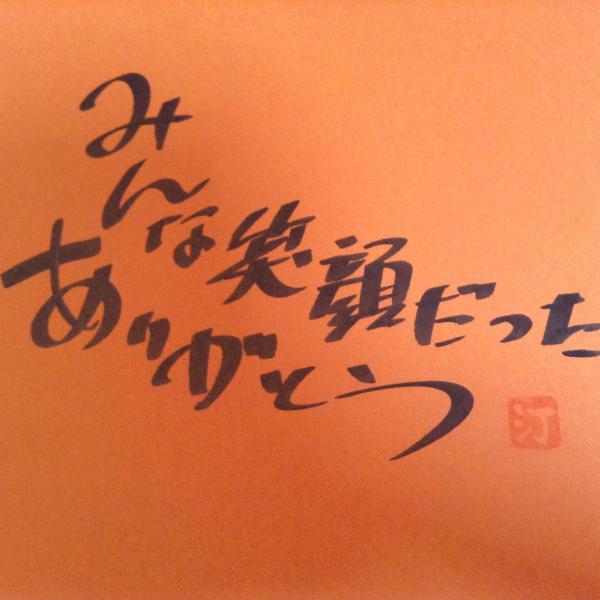 みんな笑顔だった
ありがとう
汀